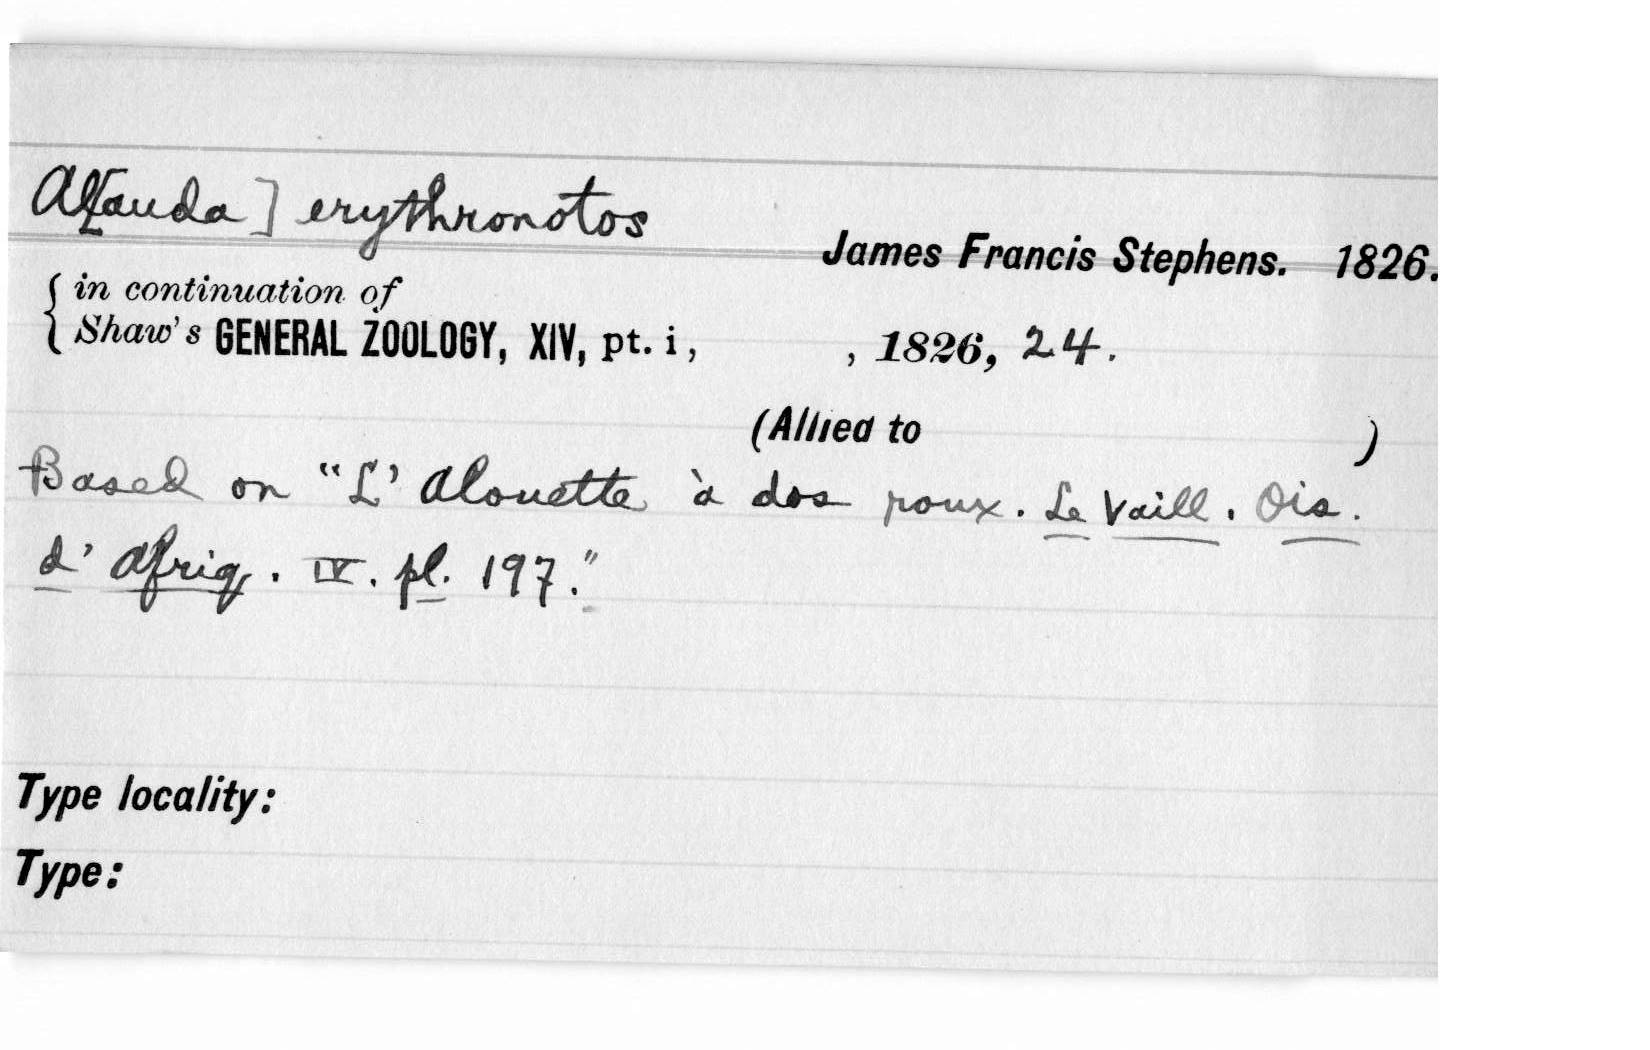 Al[auda] erythronotos
James Francis Stephens. 1826.
in continuation of
Shaw's GENERAL ZOOLOGY, XIV, pt. i, , 1826, 24.
(Allied to )
Based on "L'Alouette à dos roux. Le Vaill. Ois.
d'Afriq. IV. pl. 197."
Type locality:
Type: